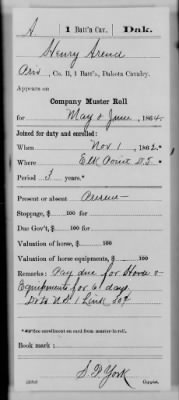 A | 1 Batt'n Cav. | Dak.
Henry Arend
Co. B, 1 Batt'n, Dakota Cavalry.
Appears on
Company Muster Roll
for May & June, 1864.
Joined for duty and enrolled:
When Nov 1, 1862.*
Where Elk Point D.T.
Period 3 years.*
Present or absent
Stoppage, $ 100 for
Due Gov't, $ 100 for
Valuation of horse, $ 100
Valuation of horse equipments, $ 100
Remarks: Pay due for Horse &
Equipments for 61 days.
1 Link
*See enrollment on card from muster-in roll.
Book mark:
S. P. York
Copyist.